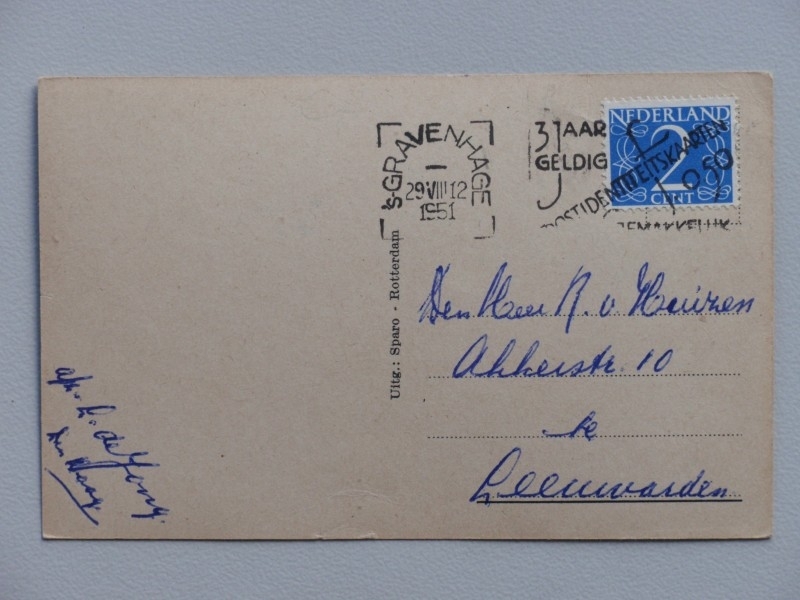 'S-GRAVENHAGE
29 VIII 12
1951
3 JAAR
GELDIG
POSTIDENTITEITSKAARTEN
0.50
GEMAKKELIJK
NEDERLAND
2
CENT
Uitg.: Sparo - Rotterdam
Den Heer R. v. Huizen
Akkerstr. 10
te
Leeuwarden
afz. L. de Jong.
Den Haag.